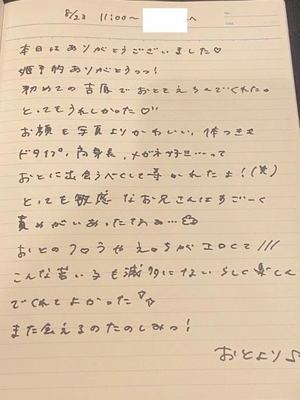 8/23 11:00〜 へ
本日はありがとうございました♡
予約ありがとうっっ!
初めての吉原でおとをえらんでくれた。
とってもうれしかった♡
お顔も写真よりかわいい、体つき
ドタイプ、高身長、メガネ好き…って
おとに出会うべくして導かれたよ!(笑)
とっても敏感なお兄さんはすごーく
責めがいあったなぁ…
おとのフロウやえろさがエロくて///
こんな若い子も滅多にないらしく楽しん
でくれてよかった
また会えるのたのしみっ!
おとより♪